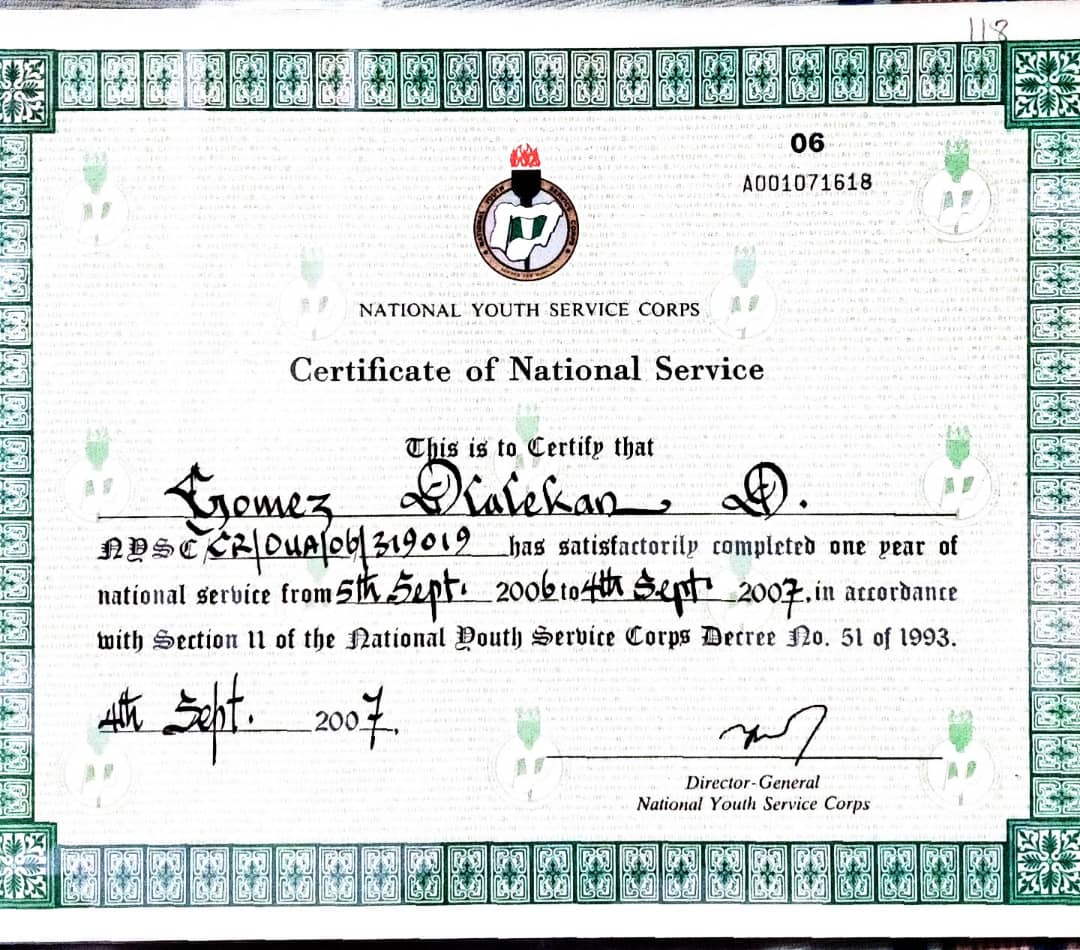 118
06
A001071618
NATIONAL YOUTH SERVICE CORPS
NATIONAL YOUTH SERVICE CORPS
Certificate of National Service
This is to Certify that
Gomez Olalekan, O.
NYSC/CR/OUA/06/319019 has satisfactorily completed one year of
national service from 5th Sept. 2006 to 4th Sept. 2007, in accordance
with Section 11 of the National Youth Service Corps Decree No. 51 of 1993.
4th Sept. 2007.
Director-General
National Youth Service Corps